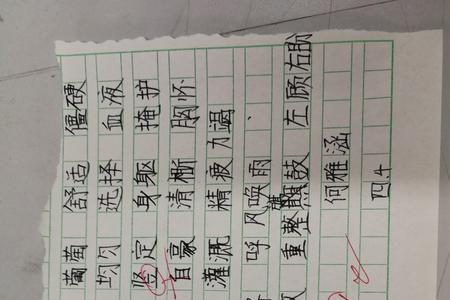 葡萄 舒适 僵硬
均匀 选择 血液
坚定 身躯 掩护
自豪 清晰 胸怀
灌溉 精疲力竭
呼风唤雨
重整旗鼓 左顾右盼
何雅涵
四.4